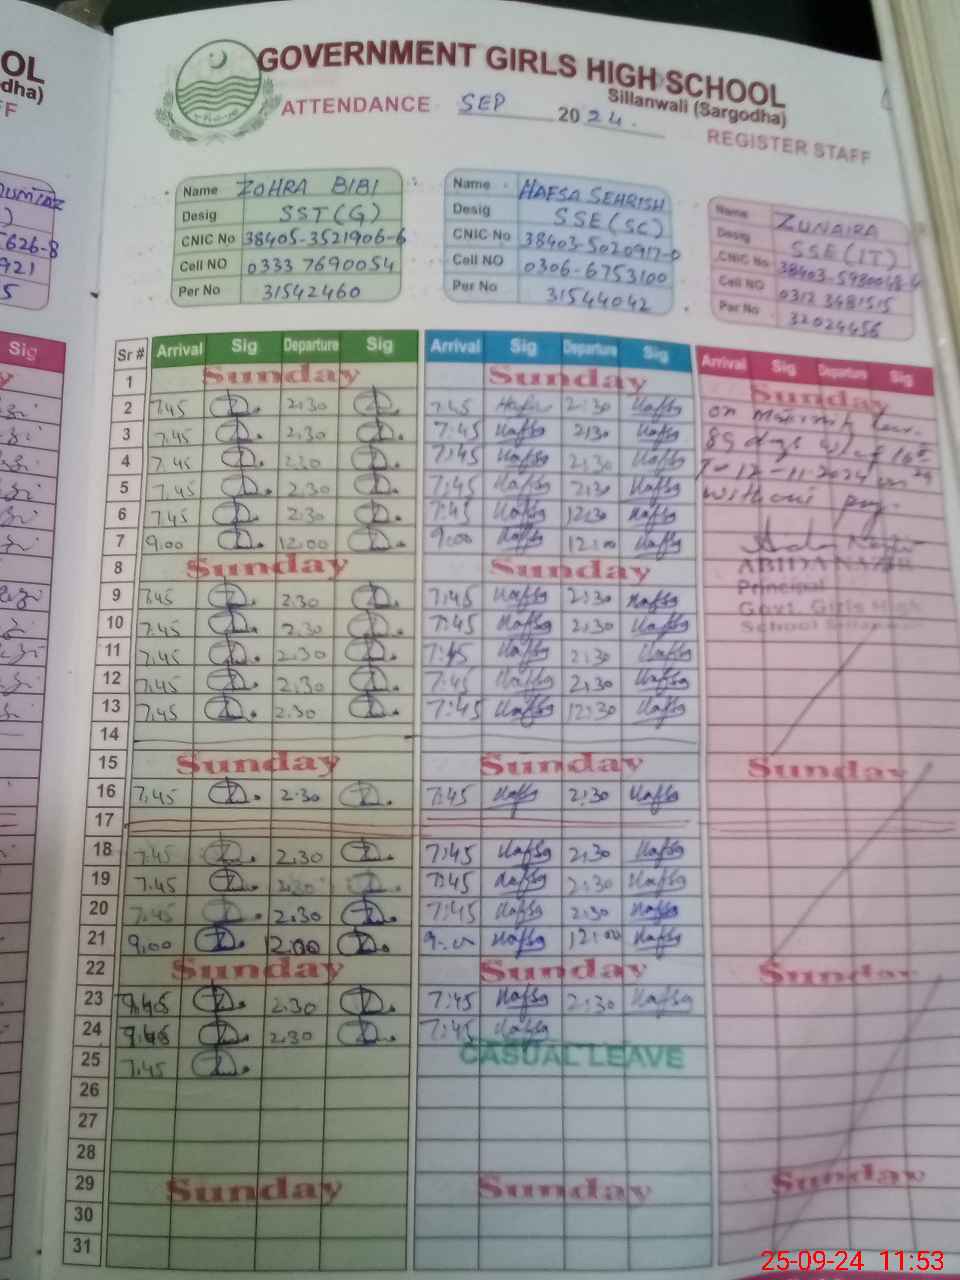 GOVERNMENT GIRLS HIGH SCHOOL
Sillanwali (Sargodha)
ATTENDANCE SEP 2024.
REGISTER STAFF
OL
dha)
FF
626-8
921
5
Sig
Name ZOHRA BIBI
Desig SST(G)
CNIC No 38405-3521906-6
Cell NO 0333 7690054
Per No 31542460
Name HAFSA SEHRISH
Desig SSE(SC)
CNIC No 38403-5020917-0
Cell NO 0306-6753100
Per No 31544042
Name ZUNAIRA
Desig SSE(IT)
CNIC No 38403-5980048-4
Cell NO 0312 3481515
Per No 32024456
Sr # Arrival Sig Departure Sig Arrival Sig Departure Sig Arrival Sig Departure Sig
1 Sunday Sunday Sunday
2 7.45 2:30 7:45 Hafsa 2:30 Hafsa on
3 7.45 2.30 7:45 Hafsa 2:30 Hafsa 89 days
4 7.45 2.30 7:45 Hafsa 2:30 Hafsa 12-11-2024
5 7.45 2.30 7:45 Hafsa 2:30 Hafsa without pay.
6 7.45 2.30 7:45 Hafsa 12:30 Hafsa
7 9.00 12.00 9:00 Hafsa 12:00 Hafsa
ABIDA NAZIR
Principal
Govt. Girls High
School Sillanwali
8 Sunday Sunday
9 7.45 2.30 7:45 Hafsa 2:30 Hafsa
10 7.45 2.30 7:45 Hafsa 2:30 Hafsa
11 7.45 2.30 7:45 Hafsa 2:30 Hafsa
12 7.45 2.30 7:45 Hafsa 2:30 Hafsa
13 7.45 2.30 7:45 Hafsa 12:30 Hafsa
14
15 Sunday Sunday Sunday
16 7.45 2.30 7:45 Hafsa 2:30 Hafsa
17
18 7.45 2.30 7:45 Hafsa 2:30 Hafsa
19 7.45 2.30 7:45 Hafsa 2:30 Hafsa
20 7.45 2.30 7:45 Hafsa 2:30 Hafsa
21 9.00 12.00 9:00 Hafsa 12:00 Hafsa
22 Sunday Sunday Sunday
23 7.45 2.30 7:45 Hafsa 2:30 Hafsa
24 7.45 2.30 7:45 Hafsa
25 7.45 CASUAL LEAVE
26
27
28
29 Sunday Sunday Sunday
30
31
25-09-24 11:53